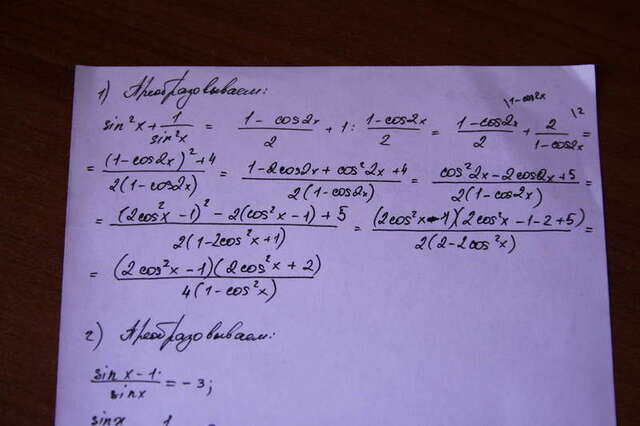 1) Преобразовываем:
sin²x + 1/sin²x = (1 - cos2x)/2 + 1 : (1-cos2x)/2 = (1-cos2x)/2 \1-cos2x + 2/(1-cos2x) \2 =
= ((1-cos2x)²+4)/(2(1-cos2x)) = (1-2cos2x+cos²2x+4)/(2(1-cos2x)) = (cos²2x-2cos2x+5)/(2(1-cos2x)) =
= ((2cos²x-1)²-2(cos²x-1)+5)/(2(1-2cos²x+1)) = ((2cos²x-1)(2cos²x-1-2+5))/(2(2-2cos²x)) =
= ((2cos²x-1)(2cos²x+2))/(4(1-cos²x))
2) Преобразовываем:
(sin x - 1)/sin x = -3;
sin x 1